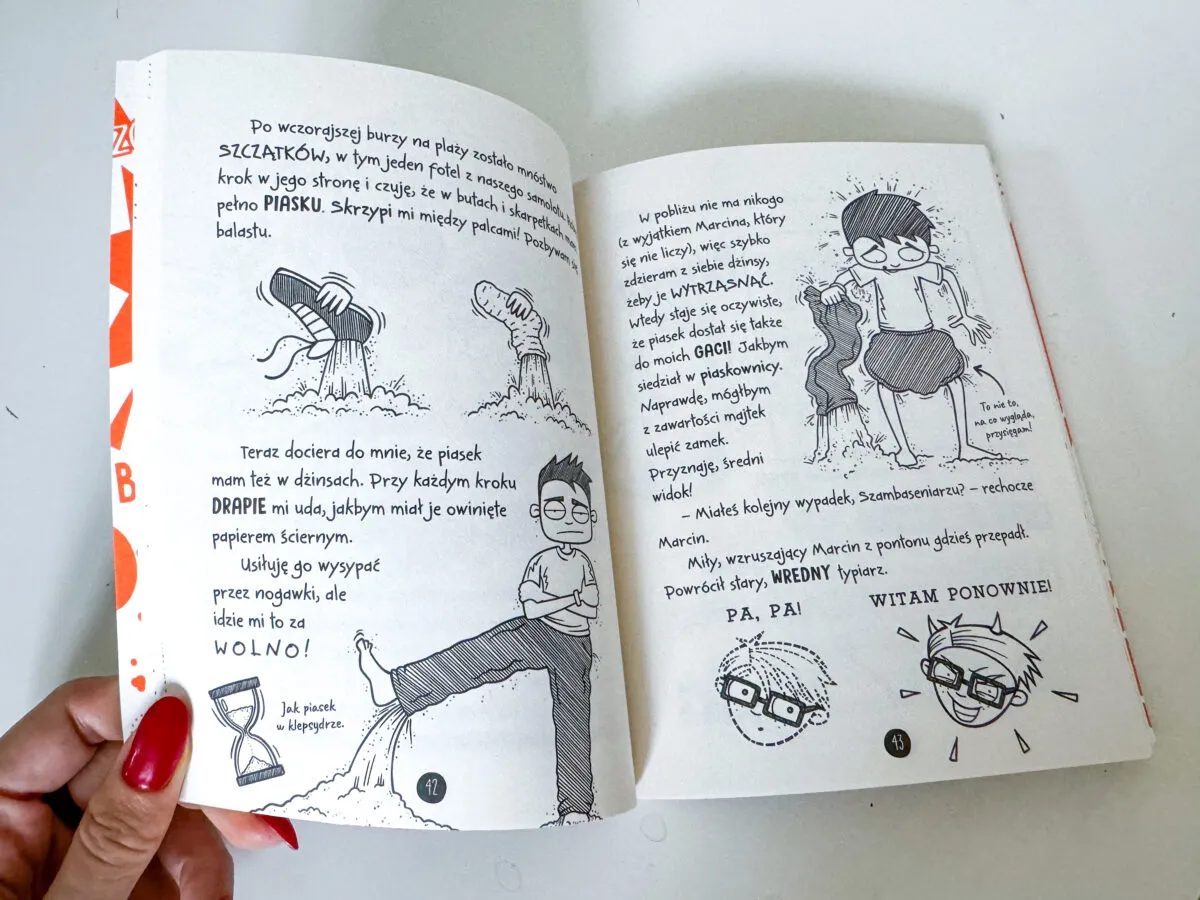 Po wczorajszej burzy na plaży zostało mnóstwo
SZCZĄTKÓW, w tym jeden fotel z naszego samolotu.
krok w jego stronę i czuję, że w butach i skarpetkach mam
pełno PIASKU. Skrzypi mi między palcami! Pozbywam się
balastu.
Teraz dociera do mnie, że piasek
mam też w dżinsach. Przy każdym kroku
DRAPIE mi uda, jakbym miał je owinięte
papierem ściernym.
Usiłuję go wysypać
przez nogawki, ale
idzie mi to za
WOLNO!
Jak piasek
w klepsydrze.
42
B
W pobliżu nie ma nikogo
(z wyjątkiem Marcina, który
się nie liczy), więc szybko
zdzieram z siebie dżinsy,
żeby je WYTRZĄSNĄĆ.
Wtedy staje się oczywiste,
że piasek dostał się także
do moich GACI! Jakbym
siedział w piaskownicy.
Naprawdę, mógłbym
z zawartości majtek
ulepić zamek.
Przyznaję, średni
widok!
To nie to,
na co wygląda,
przysięgam!
– Miałeś kolejny wypadek, Szambaseniarzu? – rechocze
Marcin.
Miły, wzruszający Marcin z pontonu gdzieś przepadł.
Powrócił stary, WREDNY typiarz.
PA, PA!
WITAM PONOWNIE!
43